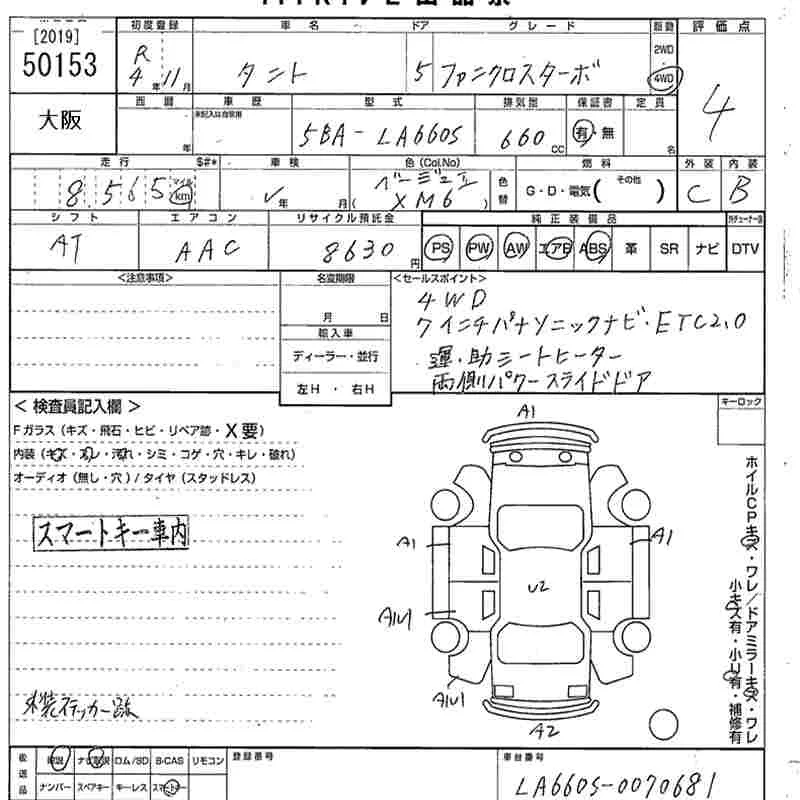 [2019]
50153
大阪
初度登録 車名 ドア グレード 駆動 評価点
R 4年11月 タント 5 ファンクロスターボ 2WD 4WD 4
西暦 車歴 型式 排気量 保証書 定員
年 未記入は自家用 5BA-LA660S 660cc 有・無 名
走行 $#* 車検 色(Col,No) 燃料 外装 内装
8,565 マイル km 年 月 ベージュII (XM6) 色替 G・D・電気( その他 ) C B
シフト エアコン リサイクル預託金 純正装備品
AT AAC 8630円 PS PW AW エアB ABS 革 SR ナビ DTV
<注意事項> 名変期限 <セールスポイント>
月 日
輸入車
ディーラー・並行
左H・右H
4WD
7インチパナソニックナビ・ETC2.0
運・助シートヒーター
両側パワースライドドア
<検査員記入欄>
Fガラス(キズ・飛石・ヒビ・リペア跡・X要)
内装(キズ・スレ・汚れ・シミ・コゲ・穴・キレ・破れ)
オーディオ(無し・穴)/タイヤ(スタッドレス)
スマートキー車内
ステッカー跡
キーロック
A1
A1
A1
U2
A1U1
A1U1
A2
ホイルCPキズ・ワレ/ドアミラーキズ・ワレ
小キズ有・小U有・補修有
後送品
取説 ナビ取説 ロム/SD B-CAS リモコン
ナンバー スペアキー キーレス スマートキー
登録番号
車台番号
LA660S-0070681